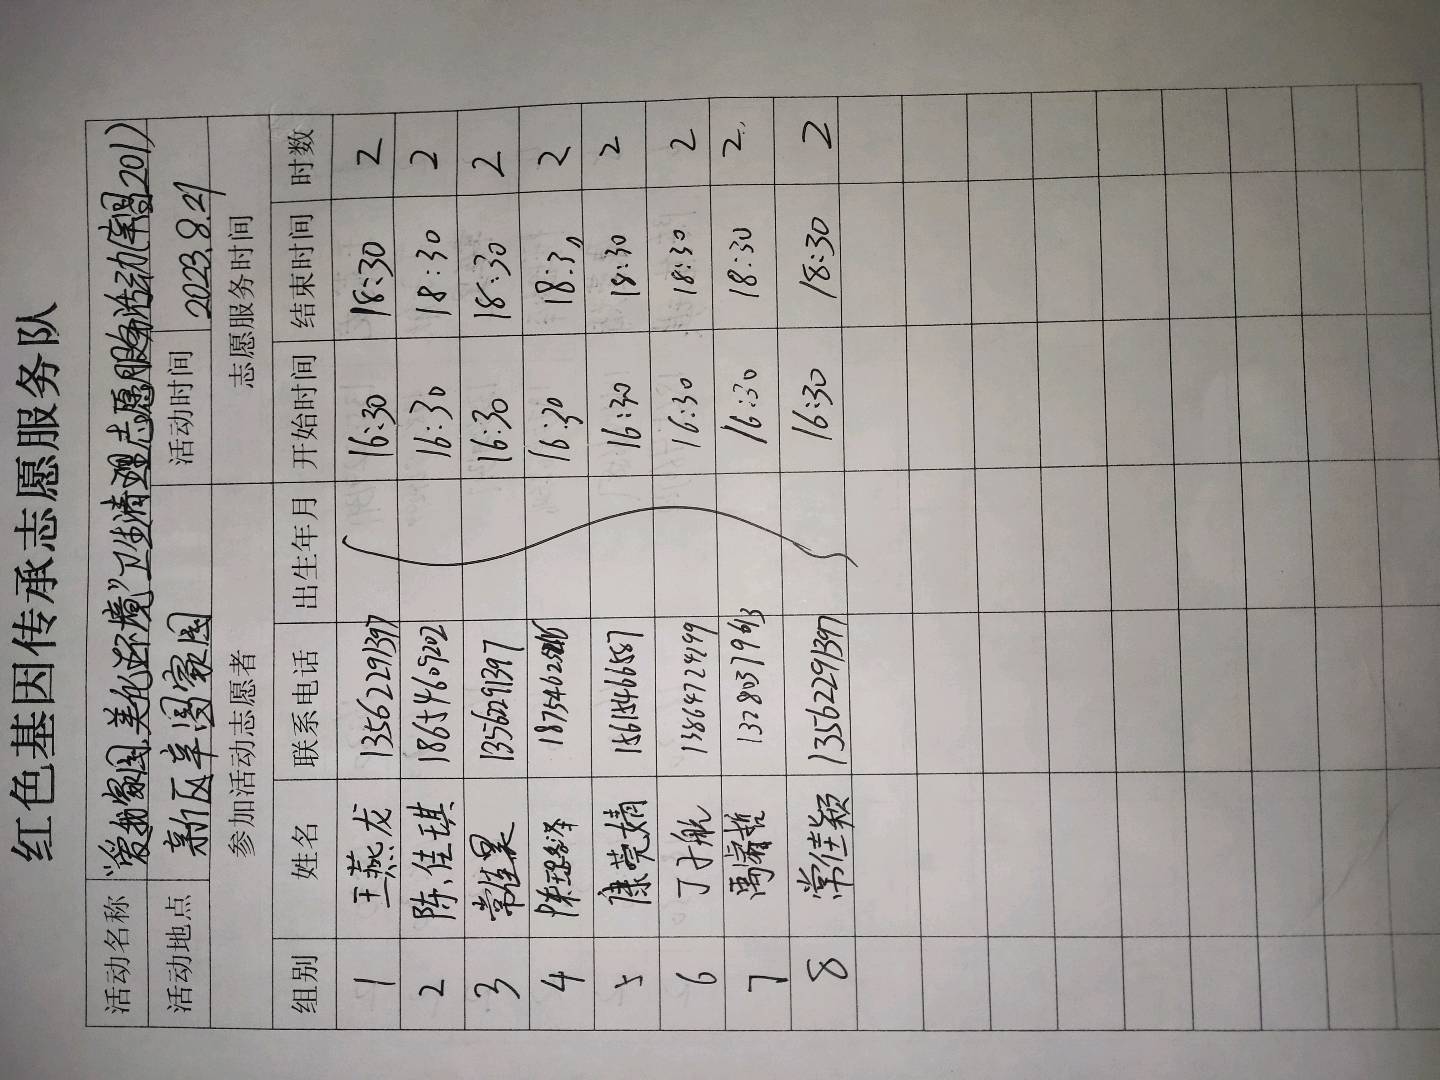 红色基因传承志愿服务队
活动名称 “爱我家园，美化环境”卫生清理志愿服务活动(第201)
活动地点 新区幸福家园 活动时间 2023.8.27
参加活动志愿者 志愿服务时间
组别 姓名 联系电话 出生年月 开始时间 结束时间 时数
1 王燕龙 13562291397 16:30 18:30 2
2 陈佳琪 18654609202 16:30 18:30 2
3 常佳昊 13562291397 16:30 18:30 2
4 16:30 18:30 2
5 康莞婧 15615466587 16:30 18:30 2
6 丁子航 13864724199 16:30 18:30 2
7 禹睿哲 16:30 18:30 2
8 常佳颖 13562291397 16:30 18:30 2